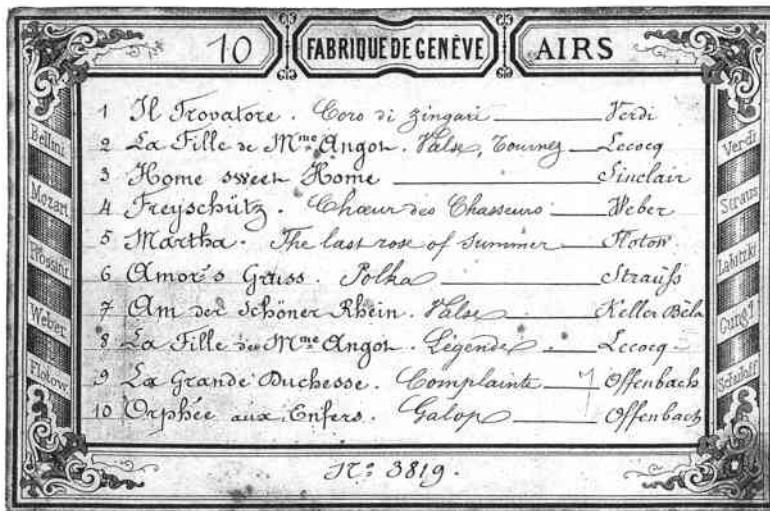 10 FABRIQUE DE GENÈVE AIRS
1 Il Trovatore. Coro di zingari Verdi
2 La Fille de Mme Angot. Valse, Tournez Lecocq
3 Home sweet Home Sinclair
4 Freyschütz. Chœur des Chasseurs Weber
5 Martha. The last rose of Summer Flotow.
6 Amor's Gruss. Polka Strauß
7 Am der Schöner Rhein. Valse Keller Béla
8 La Fille de Mme Angot. Légende Lecocq
9 La Grande Duchesse. Complainte Offenbach
10 Orphée aux Enfers. Galop Offenbach
No: 3819.
Bellini
Mozart
Rossini
Weber
Flotow
Verdi
Straus
Labitzki
Gung'l
Schulhoff